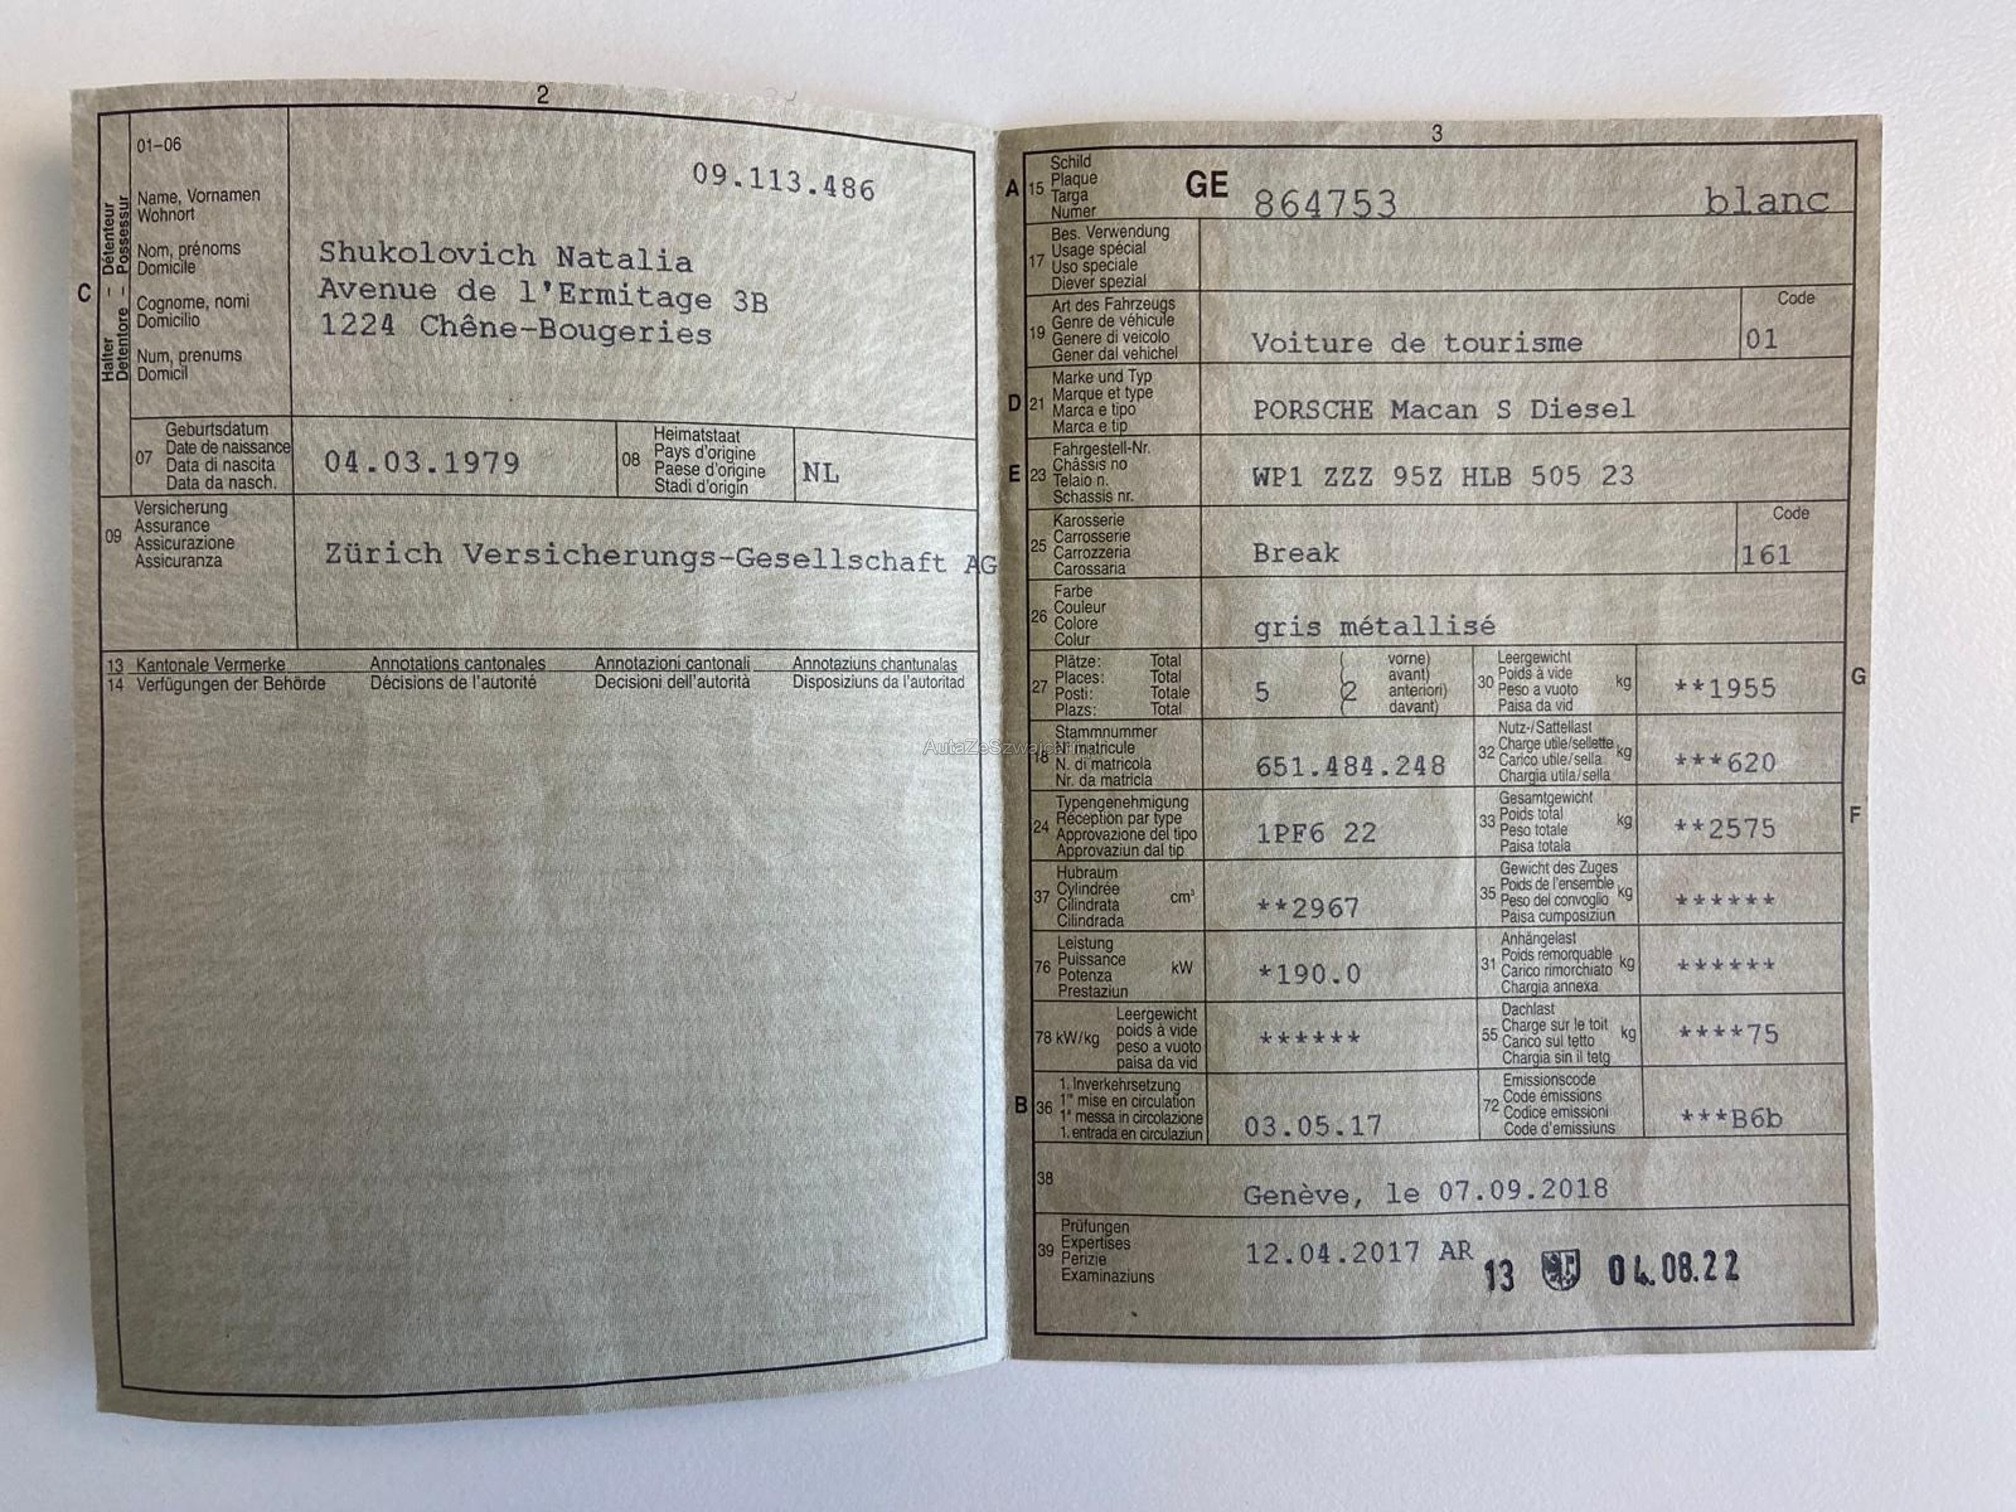 2
01-06
09.113.486
Halter – Détenteur
Detentore – Possessur
C
Name, Vornamen
Wohnort
Nom, prénoms
Domicile
Cognome, nomi
Domicilio
Num, prenums
Domicil
Shukolovich Natalia
Avenue de l'Ermitage 3B
1224 Chêne-Bougeries
07
Geburtsdatum
Date de naissance
Data di nascita
Data da nasch.
04.03.1979
08
Heimatstaat
Pays d'origine
Paese d'origine
Stadi d'origin
NL
09
Versicherung
Assurance
Assicurazione
Assicuranza
Zürich Versicherungs-Gesellschaft AG
13 Kantonale Vermerke Annotations cantonales Annotazioni cantonali Annotaziuns chantunalas
14 Verfügungen der Behörde Décisions de l'autorité Decisioni dell'autorità Disposiziuns da l'autoritad
3
A 15
Schild
Plaque
Targa
Numer
GE 864753 blanc
17
Bes. Verwendung
Usage spécial
Uso speciale
Diever spezial
19
Art des Fahrzeugs
Genre de véhicule
Genere di veicolo
Gener dal vehichel
Voiture de tourisme
Code
01
D 21
Marke und Typ
Marque et type
Marca e tipo
Marca e tip
PORSCHE Macan S Diesel
E 23
Fahrgestell-Nr.
Châssis no
Telaio n.
Schassis nr.
WP1 ZZZ 95Z HLB 505 23
25
Karosserie
Carrosserie
Carrozzeria
Carossaria
Break
Code
161
26
Farbe
Couleur
Colore
Colur
gris métallisé
27
Plätze: Total
Places: Total
Posti: Totale
Plazs: Total
5
( vorne)
( avant)
2
( anteriori)
( davant)
30
Leergewicht
Poids à vide
Peso a vuoto
Paisa da vid
kg
**1955
G
18
Stammnummer
N° matricule
N. di matricola
Nr. da matricla
651.484.248
32
Nutz-/Sattellast
Charge utile/sellette
Carico utile/sella
Chargia utila/sella
kg
***620
24
Typengenehmigung
Réception par type
Approvazione del tipo
Approvaziun dal tip
1PF6 22
33
Gesamtgewicht
Poids total
Peso totale
Paisa totala
kg
**2575
F
37
Hubraum
Cylindrée
Cilindrata
Cilindrada
cm³
**2967
35
Gewicht des Zuges
Poids de l'ensemble
Peso del convoglio
Paisa cumposiziun
kg
******
76
Leistung
Puissance
Potenza
Prestaziun
kW
*190.0
31
Anhängelast
Poids remorquable
Carico rimorchiato
Chargia annexa
kg
******
78 kW/kg
Leergewicht
poids à vide
peso a vuoto
paisa da vid
******
55
Dachlast
Charge sur le toit
Carico sul tetto
Chargia sin il tetg
kg
****75
B 36
1. Inverkehrsetzung
1re mise en circulation
1a messa in circolazione
1. entrada en circulaziun
03.05.17
72
Emissionscode
Code émissions
Codice emissioni
Code d'emissiuns
***B6b
38
Genève, le 07.09.2018
39
Prüfungen
Expertises
Perizie
Examinaziuns
12.04.2017 AR
13 04.08.22